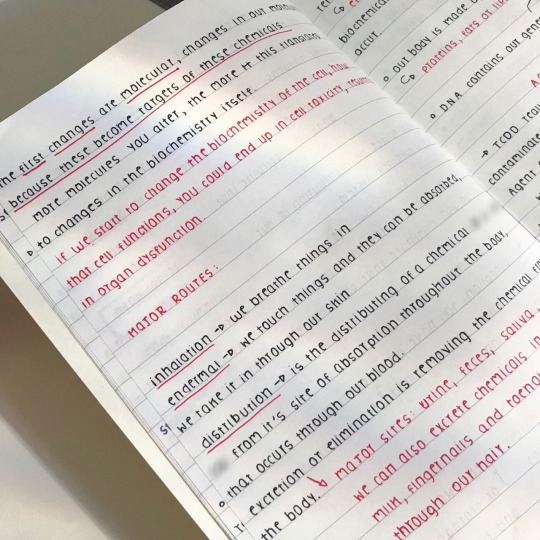 the first changes are molecular, changes in our
because these become targets of these chemicals
more molecules you alter, the more it this
to changes in the biochemistry itself.
if we start to change the biochemistry of the cell, how
that cell functions, you could end up in cell toxicity,
in organ dysfunction.
MAJOR ROUTES:
inhalation → we breathe things in
endermal → we touch things and they can be absorbed,
we take it in through our skin
distribution → is the distributing of a chemical
from it's site of absorption throughout the body,
that occurs through our blood.
excretion or elimination is removing the chemical
the body. ↳ major sites: urine, feces, saliva,
we can also excrete chemicals in
milk, fingernails and
through our hair.
biochemical
occur.
our body is made
↳ proteins, fats or
DNA contains our
→ TCDD
contaminate
Agent